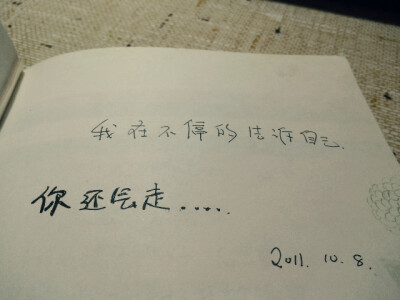 我在不停的告诉自己.
你还会走.....
2011. 10. 8.